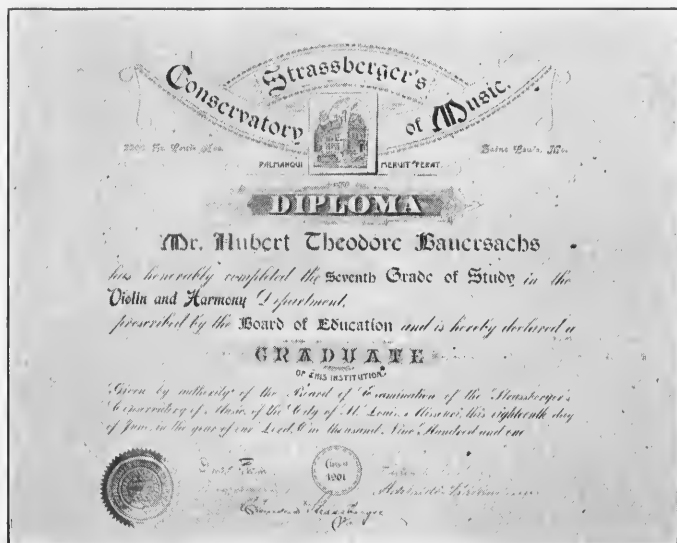 Strassberger's
Conservatory of Music.
2302 St. Louis Ave. Saint Louis, Mo.
PALMAMQUI MERUIT FERAT.
DIPLOMA
Mr. Hubert Theodore Bauersachs
has honorably completed the Seventh Grade of Study in the
Violin and Harmony Department,
prescribed by the Board of Education and is hereby declared a
GRADUATE
OF THIS INSTITUTION.
Given by authority of the Board of Examination of the Strassberger's
Conservatory of Music, of the City of St. Louis, Missouri, this eighteenth day
of June, in the year of our Lord, One thousand Nine Hundred and one
Class of
1901
Strassberger